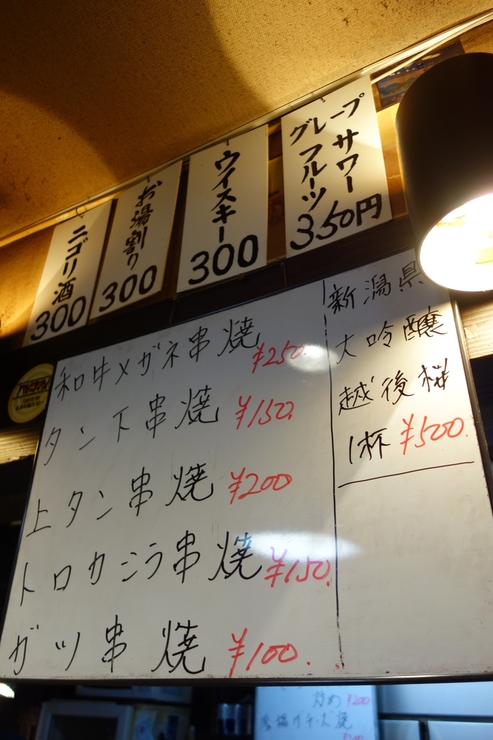 ニゴリ酒
300
お湯割り
300
ウイスキー
300
グレープ
フルーツ
サワー
350円
和牛メガネ串焼 ¥250.
タン下串焼 ¥150.
上タン串焼 ¥200
トロカシラ串焼 ¥150.
ガツ串焼 ¥100.
新潟県
大吟醸
越後桜
1杯 ¥500.